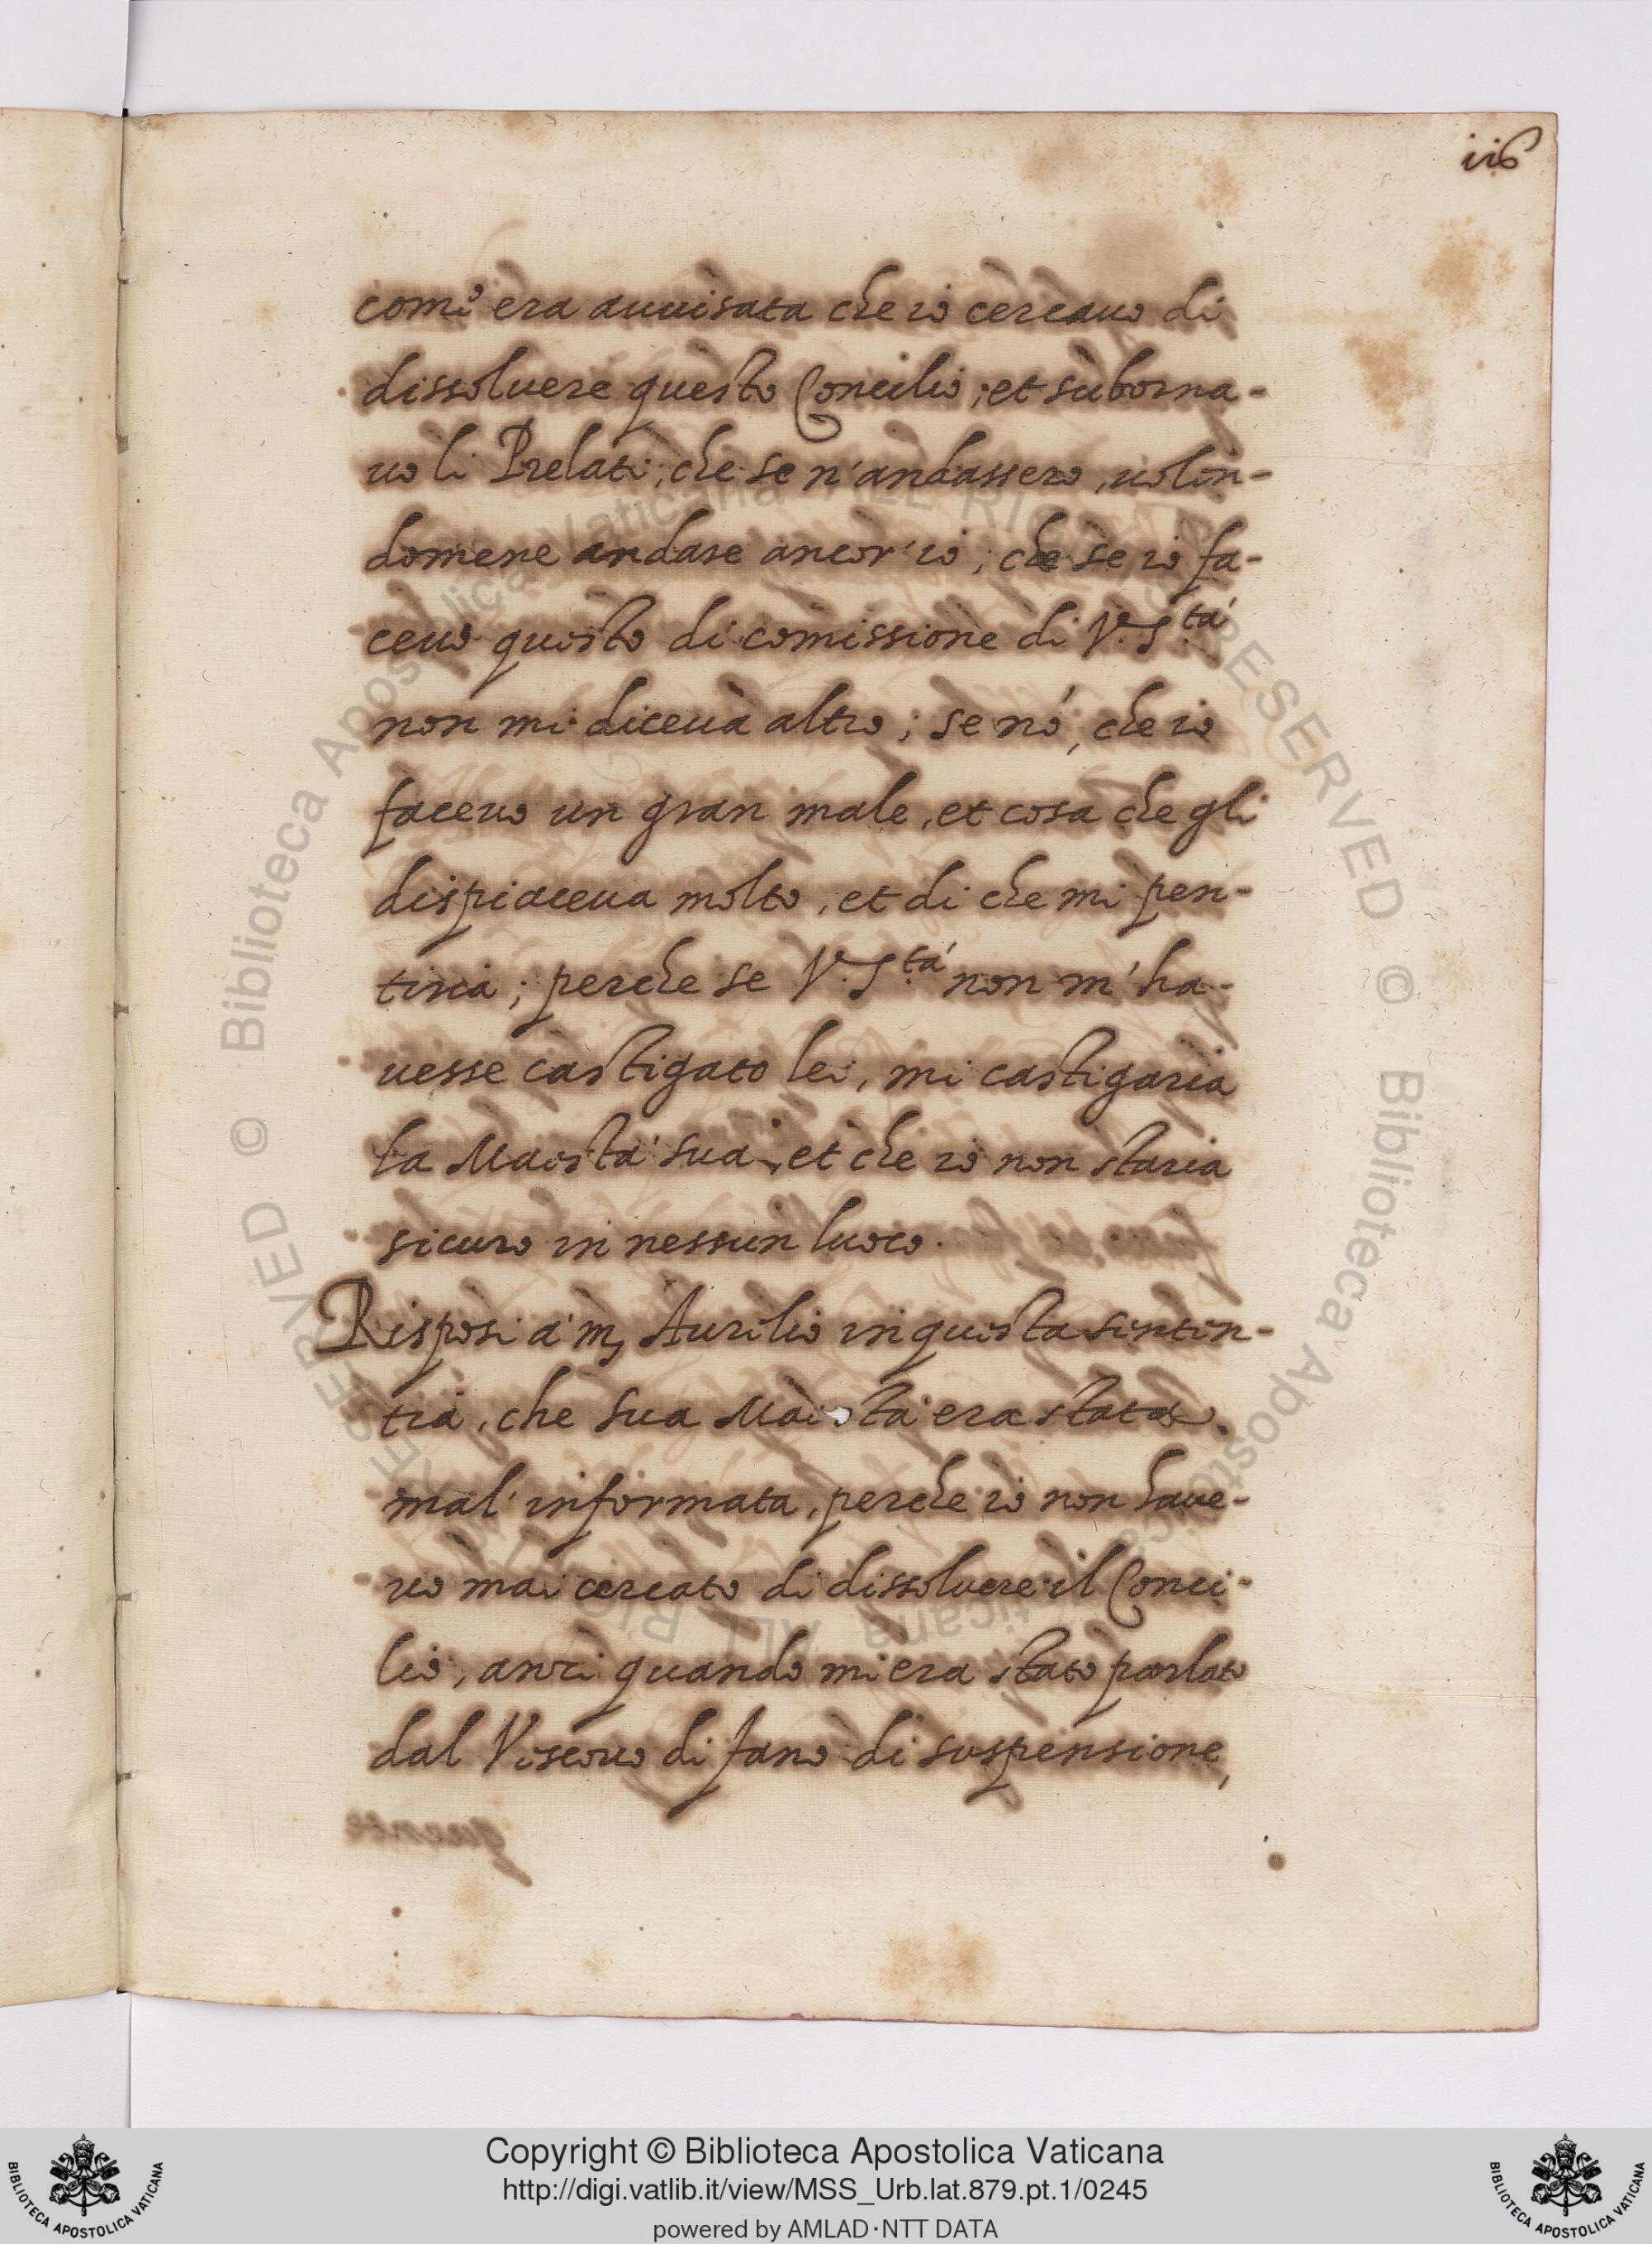 116
com'era auuisata che io cercauo di
dissoluere questo Concilio; et suborna-
uo li Prelati, che se n'andassero, uolen-
domene andare ancor'io; che se io fa-
ceuo questo di comissione di V. S.tá
non mi diceua altro; se nó, che io
faceuo un gran male, et cosa che gli
dispiaceua molto, et di che mi pen-
tiria; perche se V. S.tá non m'ha-
uesse castigato lei, mi castigaria
la Maestá sua, et che io non staria
sicuro in nessun luoco.
Risposi á m, Aurelio in questa senten-
tia, che sua Maestá era stata
mal'informata, perche io non haue-
uo mai cercato di dissoluere il Conci-
lio, anzi quando mi era stato parlato
dal Vescouo di fano di suspensione,
Copyright © Biblioteca Apostolica Vaticana
http://digi.vatlib.it/view/MSS_Urb.lat.879.pt.1/0245
powered by AMLAD·NTT DATA
BIBLIOTECA APOSTOLICA VATICANA
BIBLIOTECA APOSTOLICA VATICANA
© Biblioteca Apostolica Vaticana ALL RIGHTS RESERVED
© Biblioteca Apostolica Vaticana ALL RIGHTS RESERVED